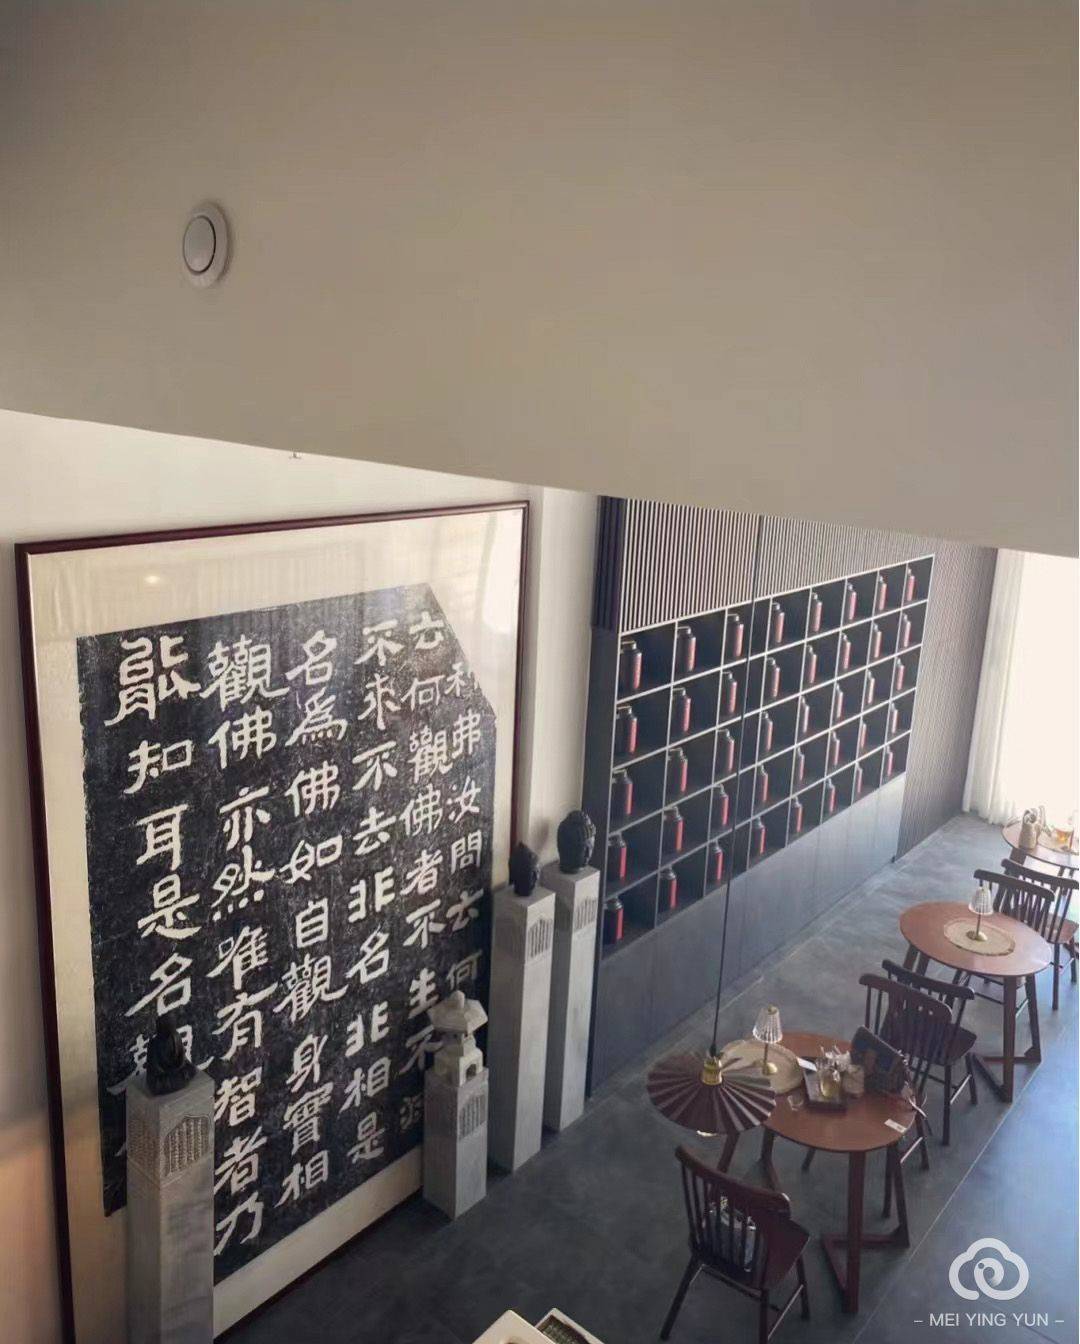 利弗汝問云何
云何觀佛者不生不滅
不來不去非名非相是
名爲佛如自觀身實相
觀佛亦然唯有智者乃
能知耳是名觀
– MEI YING YUN –